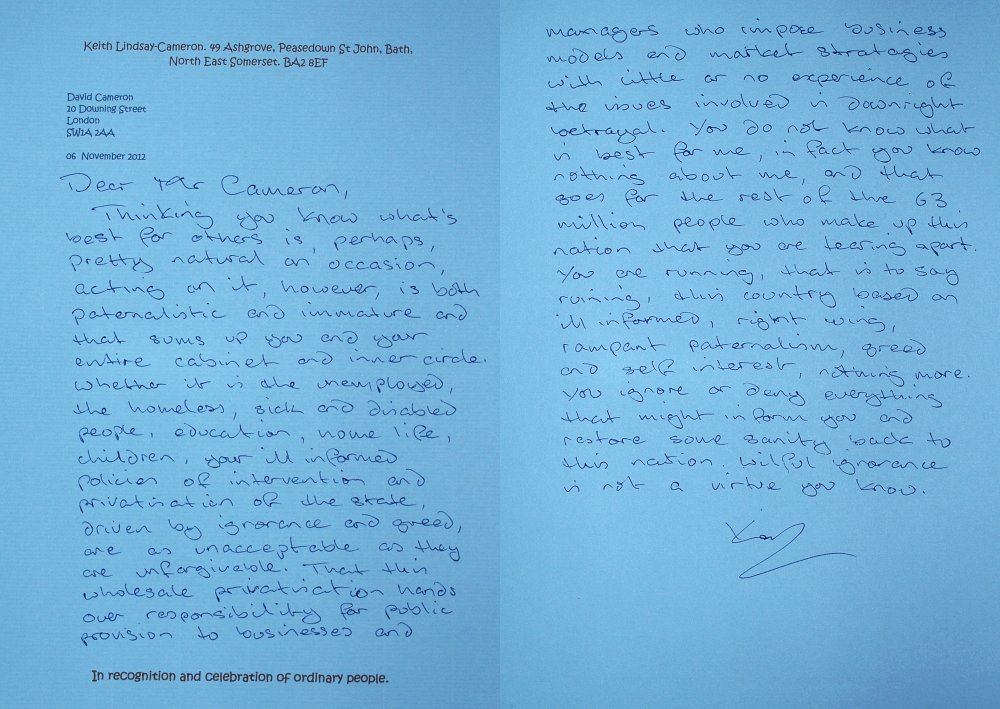 Keith Lindsay-Cameron. 49 Ashgrove, Peasedown St John, Bath,
North East Somerset. BA2 8EF
David Cameron
10 Downing Street
London
SW1A 2AA
06 November 2012
Dear Mr Cameron,
Thinking you know what's
best for others is, perhaps,
pretty natural on occasion,
acting on it, however, is both
paternalistic and immature and
that sums up you and your
entire cabinet and inner circle.
Whether it is the unemployed,
the homeless, sick and disabled
people, education, home life,
children, your ill informed
policies of intervention and
privatisation of the state,
driven by ignorance and greed,
are as unacceptable as they
are unforgivable. That this
wholesale privatisation hands
over responsibility for public
provision to businesses and
In recognition and celebration of ordinary people.
managers who impose business
models and market stratagies
with little or no experience of
the issues involved is downright
betrayal. You do not know what
is best for me, in fact you know
nothing about me, and that
goes for the rest of the 63
million people who make up this
nation that you are tearing apart.
You are running, that is to say
ruining, this country based on
ill informed, right wing,
rampant paternalism, greed
and self interest, nothing more.
You ignore or deny everything
that might inform you and
restore some sanity back to
this nation. Wilful ignorance
is not a virtue you know.